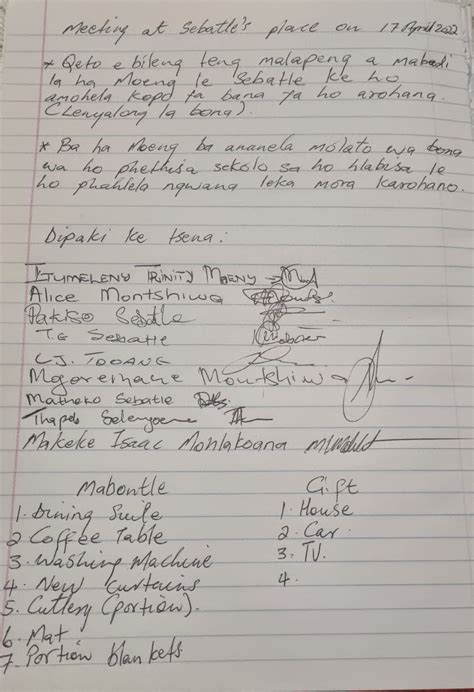 Meeting at Sebatle's place on 17 April 2022
* Qeto e bileng teng malapeng a mabedi
la ha Moeng le Sebatle ke ho
amohela kopo ya bana ya ho arohana.
(Lenyalong la bona).
* Ba ha Moeng ba ananela molato wa bona
wa ho phethisa sekolo sa ho hlabisa le
ho phahlela ngwana leka mora karohano.
Dipaki ke tsena:
Itumeleng Trinity Moeng
Alice Montshiwa
Pakiso Sebatle
TG Sebatle
C.J. TOOANE
Montshiwa
Mathoko Sebatle
Thapelo
Makeke Isaac Mohlakoana
Mabontle Gift
1. Dining Suite 1. House
2. Coffee Table 2. Car.
3. Washing Machine 3. TV.
4. New Curtains 4.
5. Cutlery (portion).
6. Mat
7. Portion blankets